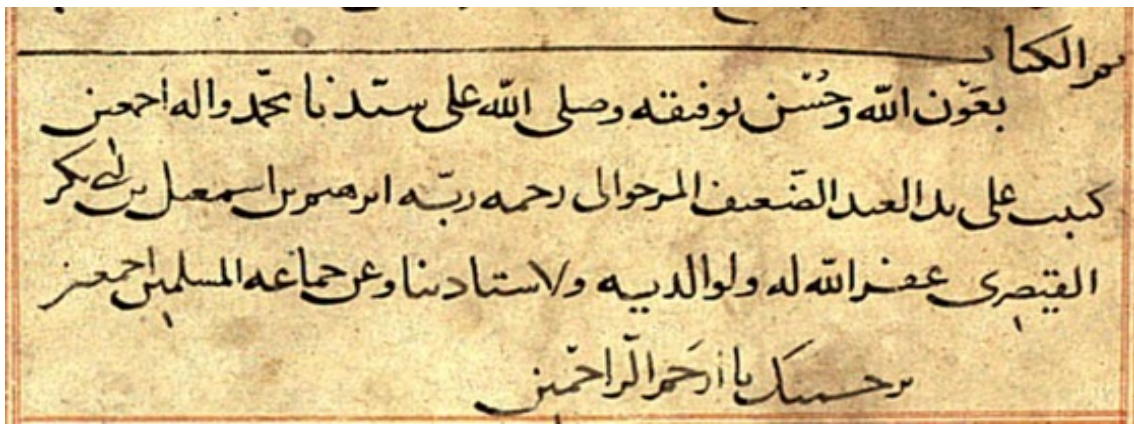 تم الكتاب
بعون الله وحسن توفيقه وصلى الله على سيدنا محمد واله اجمعين
كتبت على يد العبد الضعيف المرحوالى رحمه ربه ابرهيم بن اسمعيل بن ابى بكر
القيصرى غفر الله له ولوالديه ولاستادينا وعن جماعه المسلمين اجمعين
برحمتك يا ارحم الراحمين